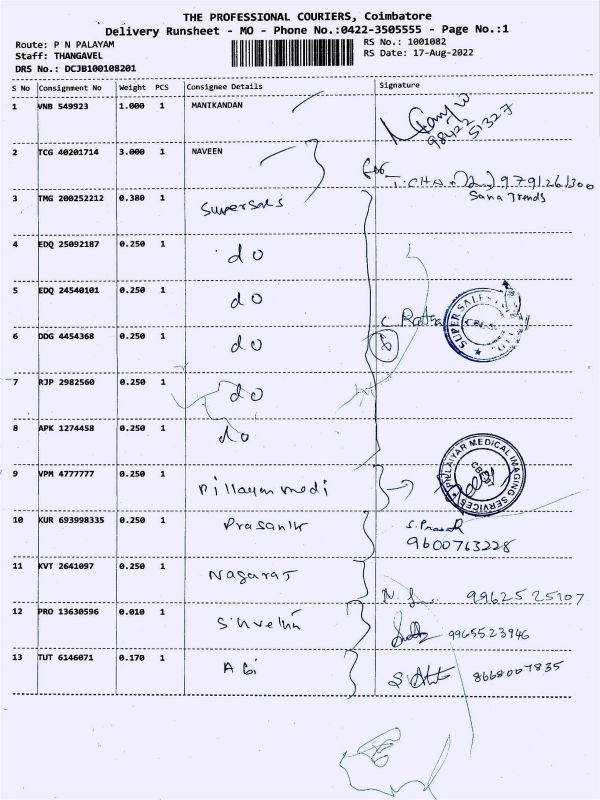 THE PROFESSIONAL COURIERS, Coimbatore
Delivery Runsheet - MO - Phone No.:0422-3505555 - Page No.:1
Route: P N PALAYAM
RS No.: 1001082
Staff: THANGAVEL
RS Date: 17-Aug-2022
DRS No.: DCJB100108201
S No Consignment No Weight PCS Consignee Details Signature
1 VNB 549923 1.000 1 MANIKANDAN
98422 51327
2 TCG 40201714 3.000 1 NAVEEN
for
9791261300
Sana Trends
3 TMG 200252212 0.380 1 Supersals
4 EDQ 25092187 0.250 1 do
5 EDQ 24540101 0.250 1 do
SUPER SALES
CBE
6 DDG 4454368 0.250 1 do
7 RJP 2982560 0.250 1 do
8 APK 1274458 0.250 1 do
PILLAIYAR MEDICAL IMAGING SERVICES
CBE
9 VPM 4777777 0.250 1 Pillayar medi
10 KUR 693998335 0.250 1 Prasanth
9600763228
11 KVT 2641097 0.250 1 Nagaraj
99625 25107
12 PRO 13630596 0.010 1
9965523946
13 TUT 6146071 0.170 1 Abi
8668007835